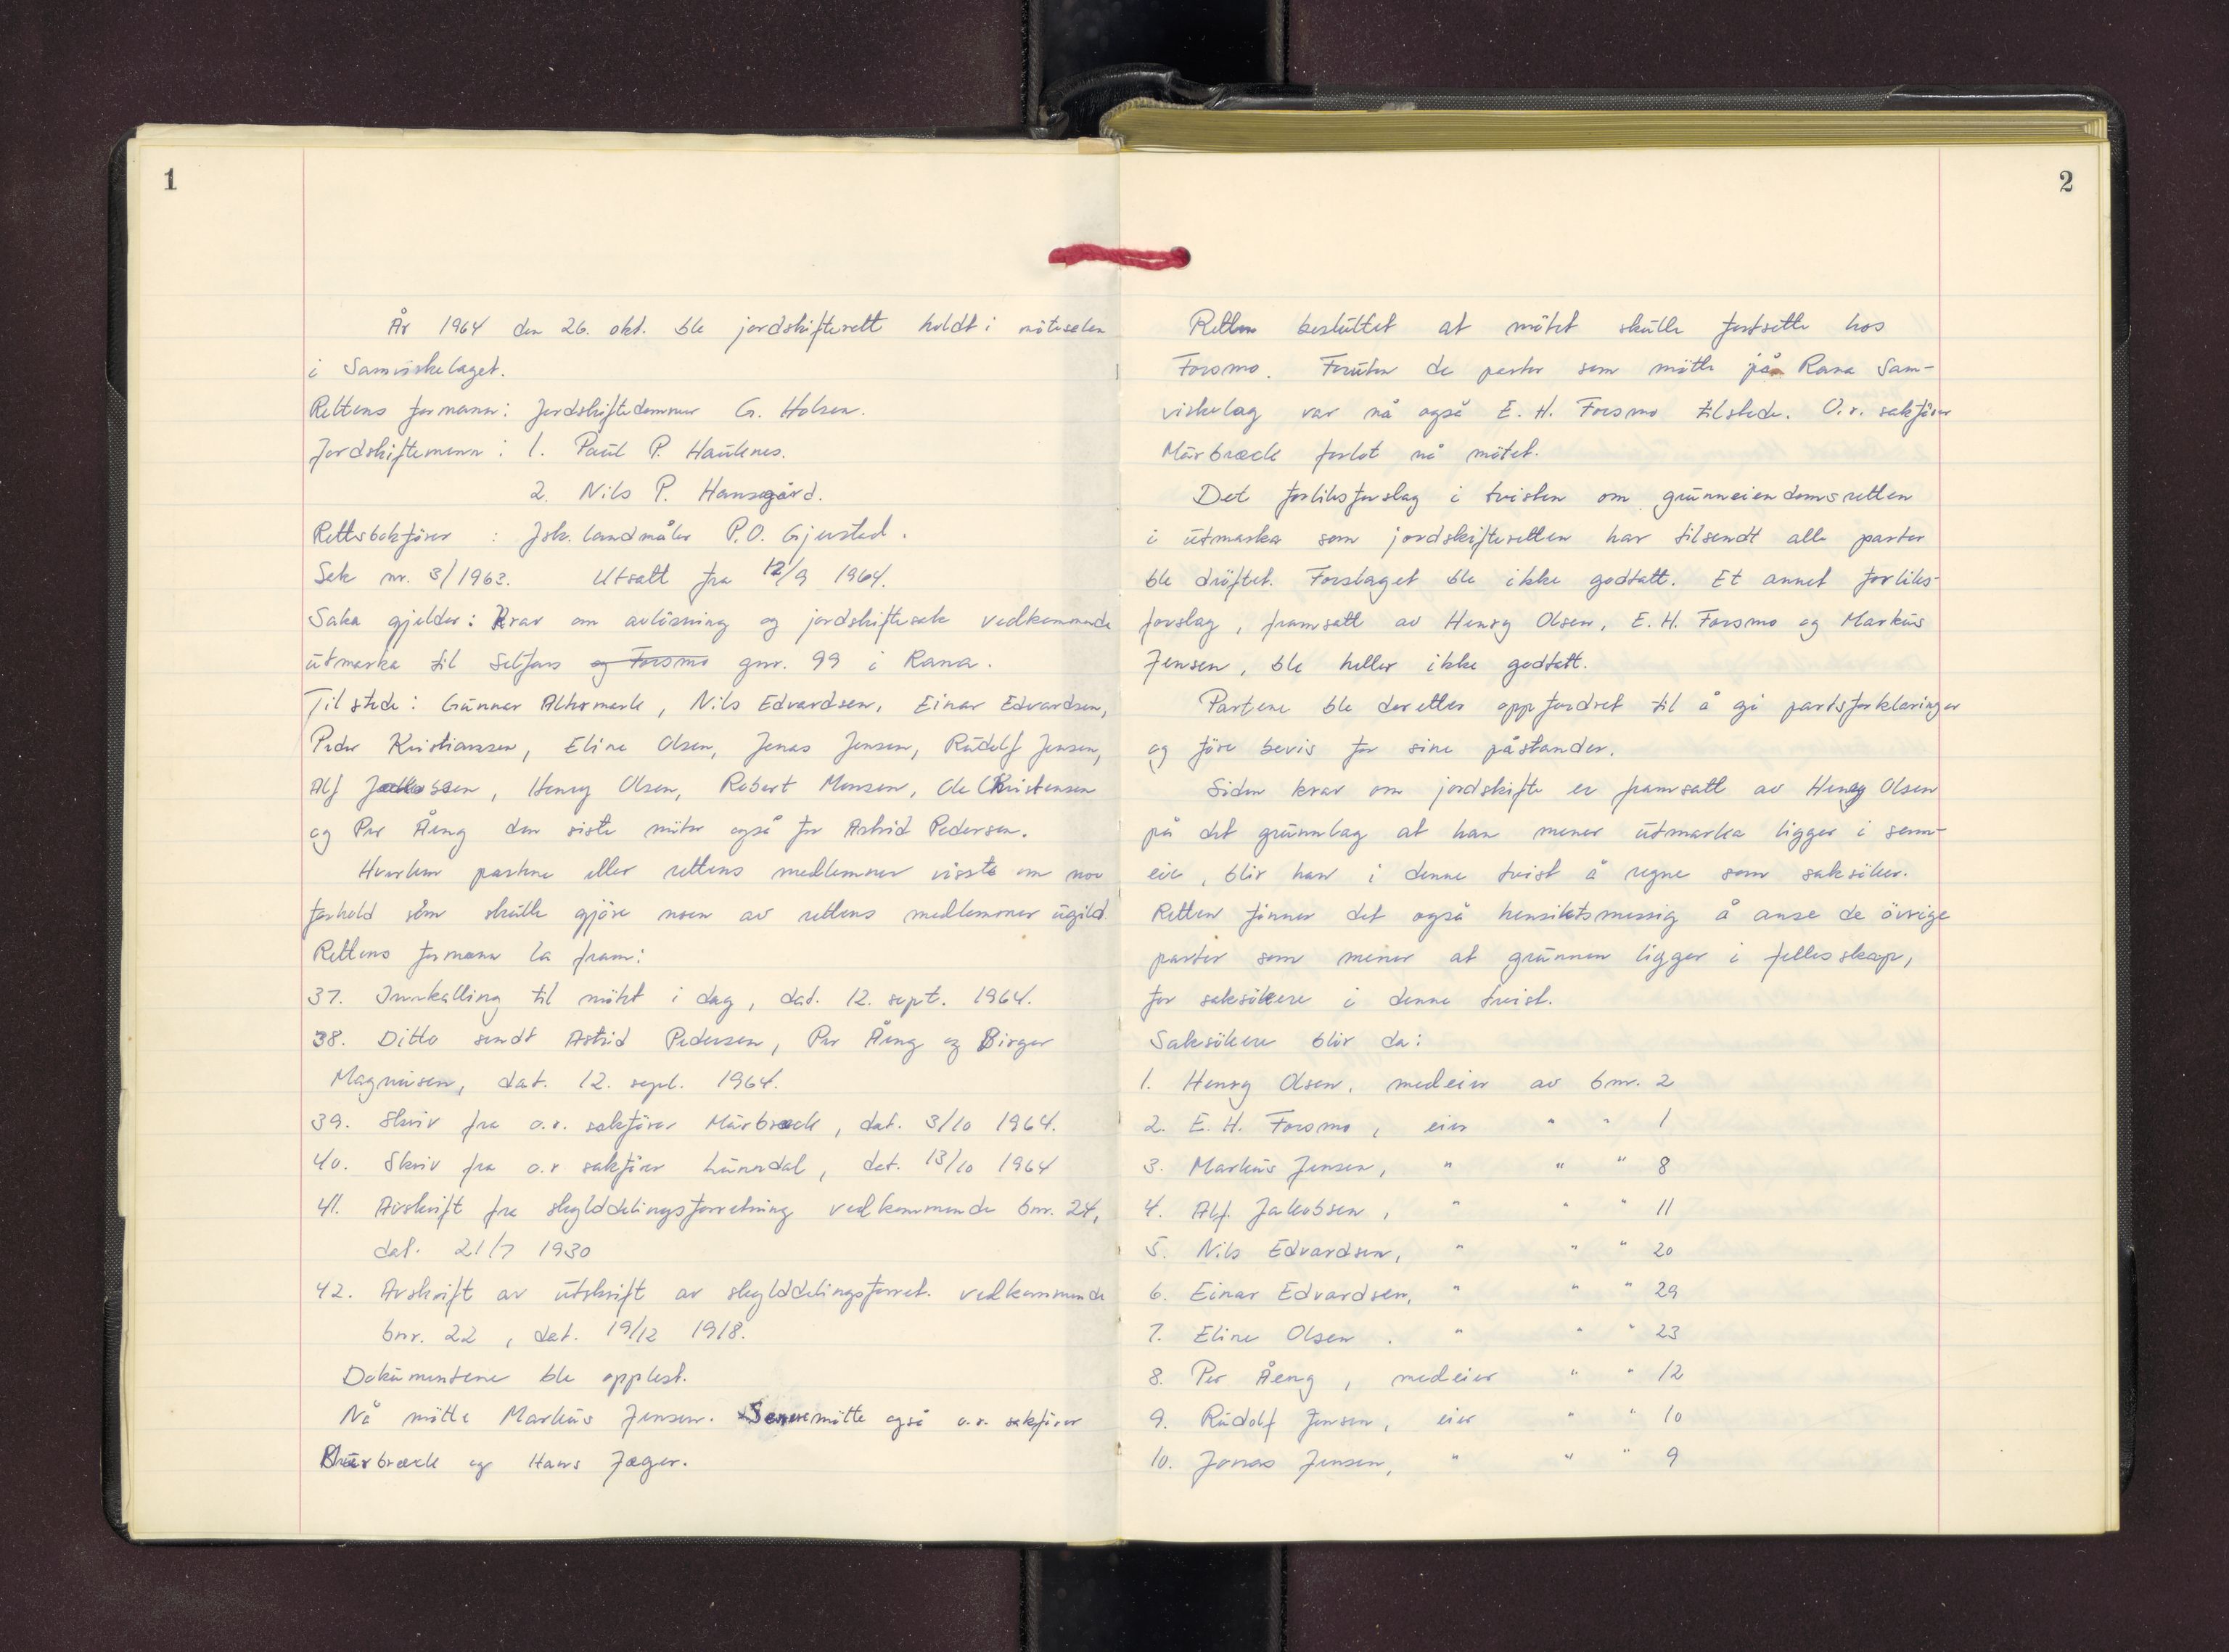 1
År 1964 den 26. okt. ble jordskifterett holdt i møtesalen
i Samvirkelaget.
Rettens formann: Jordskiftedommer G. Holsen.
Jordskiftemenn: 1. Paul P. Hauknes.
2. Nils P. Hansegård.
Rettsbokfører : Jsk. landmåler P.O. Gjersted.
Sak nr. 3/1963. Utsatt fra 12/9 1964.
Saka gjelder: Krav om avløsning og jordskiftesak vedkommende
utmarka til Selfors og Forsmo gnr. 99 i Rana.
Til stede: Gunnar Altermark, Nils Edvardsen, Einar Edvardsen,
Peder Kristianssen, Eline Olsen, Jonas Jensen, Rudolf Jensen,
Alf Jakobsen, Henry Olsen, Robert Monsen, Ole Kristensen
og Per Åeng den siste møter også for Astrid Pedersen.
Hverken partene eller rettens medlemmer visste om noe
forhold som skulle gjøre noen av rettens medlemmer ugild.
Rettens formann la fram:
37. Innkalling til møtet i dag, dat. 12. sept. 1964.
38. Ditto sendt Astrid Pedersen, Per Åeng og Birger
Magnusen, dat. 12. sept. 1964.
39. Skriv fra o.r. sakfører Murbræch, dat. 3/10 1964.
40. Skriv fra o.r sakfører Lunndal, dat. 13/10 1964
41. Avskrift fra skylddelingsforretning vedkommende bnr. 24,
dat. 21/7 1930
42. Avskrift av utskrift av skylddelingsforret. vedkommende
bnr. 22, dat. 19/12 1918.
Dokumentene ble opplest.
Nå møtte Markus Jensen. Senere møtte også o.r. sakfører
Murbræch og Hans Jæger.
2
Retten besluttet at møtet skulle fortsette hos
Forsmo. Foruten de parter som møtte på Rana Sam-
virkelag var nå også E. H. Forsmo tilstede. O.r. sakfører
Murbræch forlot nå møtet.
Det forliksforslag i tvisten om grunneiendomsretten
i utmarka som jordskifteretten har tilsendt alle parter
ble drøftet. Forslaget ble ikke godtatt. Et annet forliks-
forslag, framsatt av Henry Olsen, E. H. Forsmo og Markus
Jensen, ble heller ikke godtatt.
Partene ble deretter oppfordret til å gi partsforklaringer
og føre bevis for sine påstander.
Siden krav om jordskifte er framsatt av Henry Olsen
på det grunnlag at han mener utmarka ligger i sam-
eie, blir han i denne tvist å regne som saksøker.
Retten finner det også hensiktsmessig å anse de øvrige
parter som mener at grunnen ligger i fellesskap,
for saksøkere i denne tvist.
Saksøkere blir da:
1. Henry Olsen, medeier av bnr. 2
2. E. H. Forsmo, eier " " 1
3. Markus Jensen, " " " 8
4. Alf. Jakobsen, " " " 11
5. Nils Edvardsen, " " " 20
6. Einar Edvardsen, " " " 29
7. Eline Olsen . " " " 23
8. Per Åeng, medeier " " 12
9. Rudolf Jensen, eier " " 10
10. Jonas Jensen, " " " 9